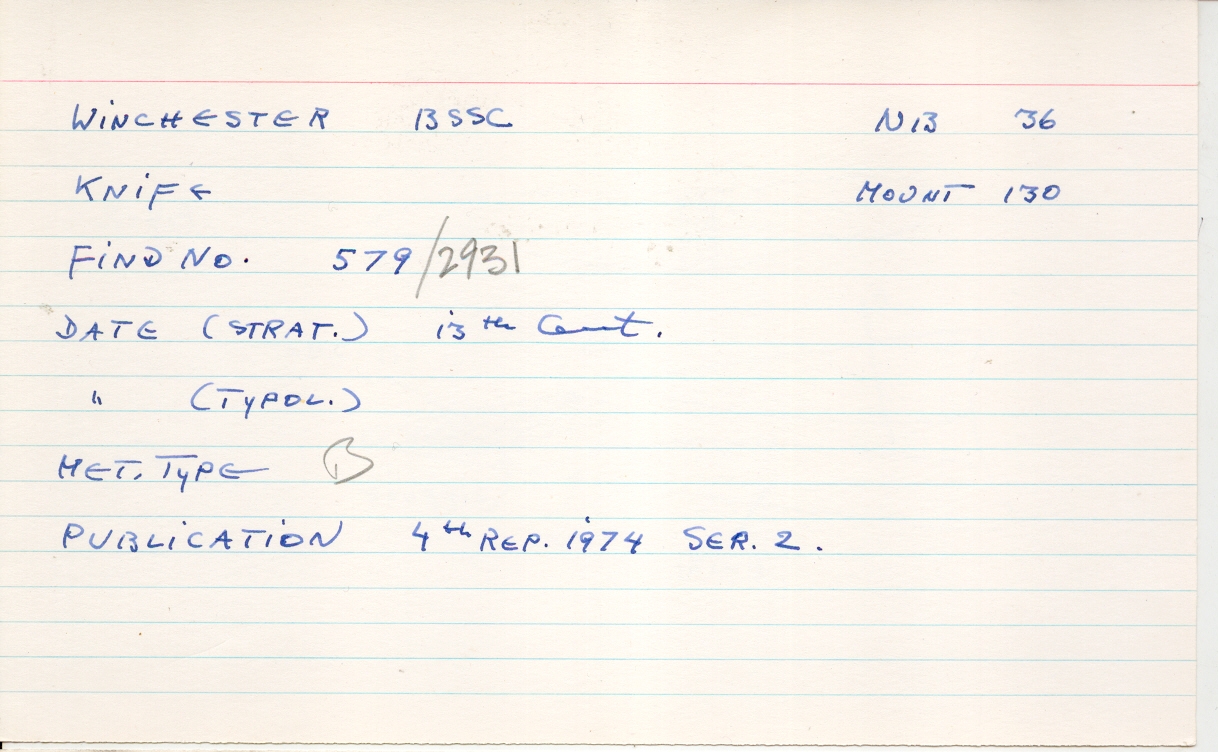 WINCHESTER BSSC NB 36
KNIFE MOUNT 130
FIND NO. 579/2931
DATE (STRAT.) 13th Cent.
" (TYPOL.)
MET. TYPE B
PUBLICATION 4th REP. 1974 SER. 2.